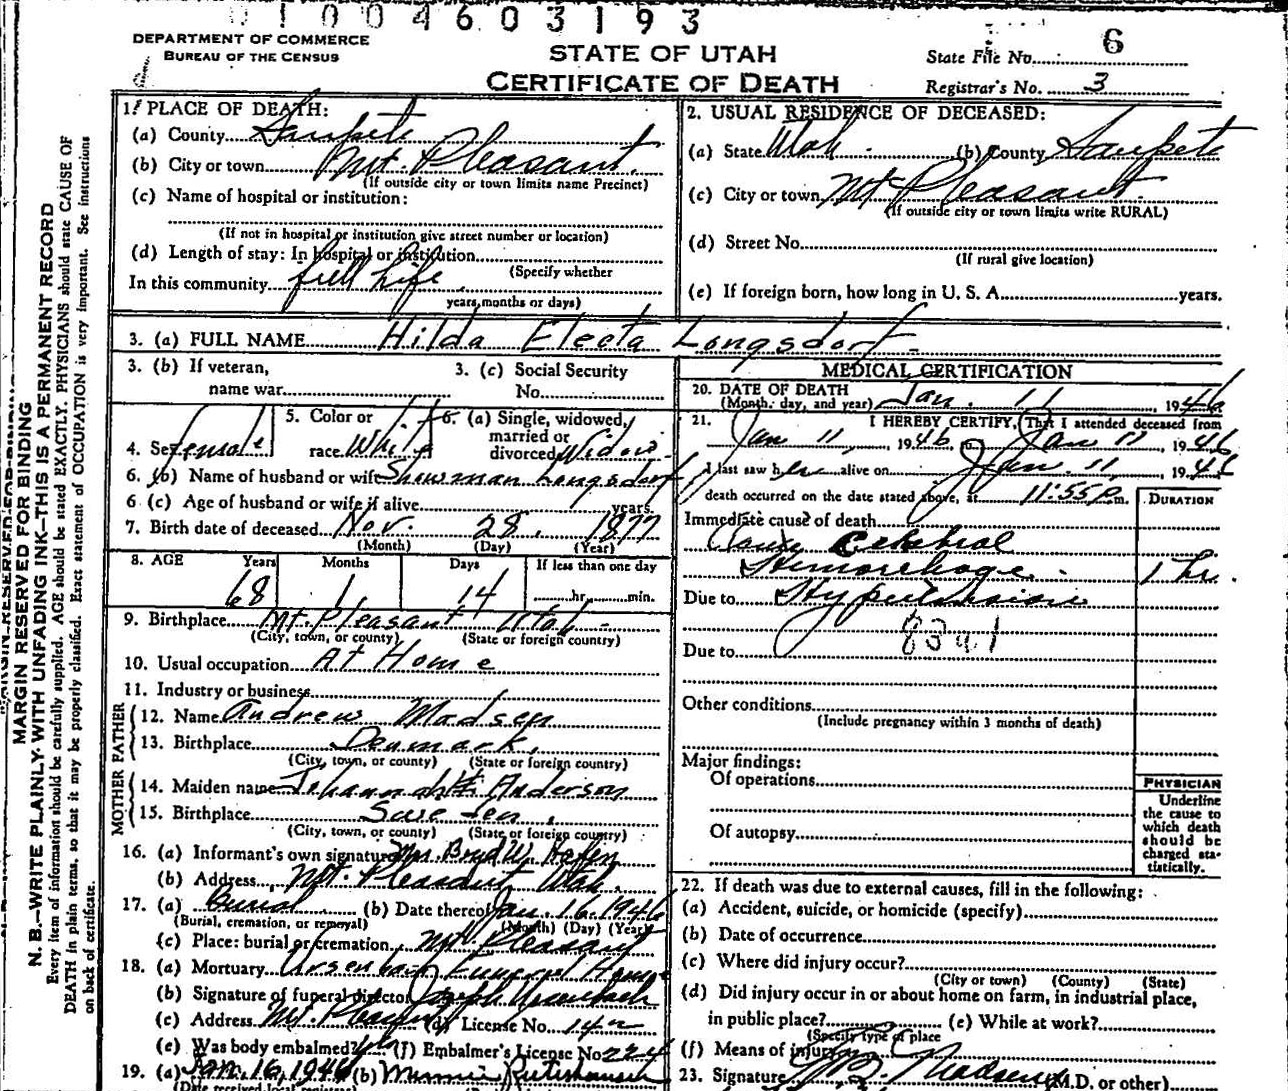 0 1 0 0 4 6 0 3 1 9 3
DEPARTMENT OF COMMERCE
BUREAU OF THE CENSUS
STATE OF UTAH
CERTIFICATE OF DEATH
State File No. 6
Registrar's No. 3
1. PLACE OF DEATH:
(a) County Sanpete
(b) City or town Mt. Pleasant.
(If outside city or town limits name Precinct)
(c) Name of hospital or institution:
(If not in hospital or institution give street number or location)
(d) Length of stay: In hospital or institution
(Specify whether
In this community full life
years, months or days)
2. USUAL RESIDENCE OF DECEASED:
(a) State Utah (b) County Sanpete
(c) City or town Mt Pleasant.
(If outside city or town limits write RURAL)
(d) Street No.
(If rural give location)
(e) If foreign born, how long in U. S. A. years.
3. (a) FULL NAME Hilda Electa Longsdorf
3. (b) If veteran,
name war
3. (c) Social Security
No.
4. Sex Female
5. Color or
race White
6. (a) Single, widowed,
married or
divorced Widow
6. (b) Name of husband or wife Showman Longsdorf
6 (c) Age of husband or wife if alive years
7. Birth date of deceased Nov. 28, 1877
(Month) (Day) (Year)
8. AGE Years Months Days If less than one day
68 1 14 hr. min.
9. Birthplace Mt. Pleasant Utah
(City, town, or county) (State or foreign country)
10. Usual occupation At Home
11. Industry or business
FATHER
12. Name Andrew Madsen
13. Birthplace Denmark,
(City, town, or county) (State or foreign country)
MOTHER
14. Maiden name Anderson
15. Birthplace
(City, town, or county) (State or foreign country)
16. (a) Informant's own signature Mrs. Boyd W. Hafen
(b) Address Mt. Pleasant Utah.
17. (a) Burial (b) Date thereof Jan. 16, 1946
(Burial, cremation, or removal) (Month) (Day) (Year)
(c) Place: burial or cremation Mt. Pleasant
18. (a) Mortuary Ursenbach Funeral Home
(b) Signature of funeral director Joseph Ursenbach
(c) Address Mt. Pleasant (d) License No. 142
(e) Was body embalmed? yes (f) Embalmer's License No 224
19. (a) Jan. 16, 1946 (b) Minnie
(Date received local registrar)
MEDICAL CERTIFICATION
20. DATE OF DEATH
(Month, day, and year) Jan. 11, 1946
21. I HEREBY CERTIFY, That I attended deceased from
Jan 11, 1946 to Jan 11 1946
I last saw her alive on Jan. 11, 1946
death occurred on the date stated above, at 11:55 p.m.
DURATION
Immediate cause of death
Cerebral
Hemorrhage. 1 hr.
Due to Hypertension
Due to 83a1
Other conditions
(Include pregnancy within 3 months of death)
Major findings:
Of operations
Of autopsy
PHYSICIAN
Underline
the cause to
which death
should be
charged sta-
tistically.
22. If death was due to external causes, fill in the following:
(a) Accident, suicide, or homicide (specify)
(b) Date of occurrence
(c) Where did injury occur?
(City or town) (County) (State)
(d) Did injury occur in or about home on farm, in industrial place,
in public place? (e) While at work?
(Specify type of place
(f) Means of injury
23. Signature Madsen (M.D. or other)
MARGIN RESERVED FOR BINDING
N. B.—WRITE PLAINLY WITH UNFADING INK—THIS IS A PERMANENT RECORD
Every item of information should be carefully supplied. AGE should be stated EXACTLY. PHYSICIANS should state CAUSE OF
DEATH in plain terms, so that it may be properly classified. Exact statement of OCCUPATION is very important. See instructions
on back of certificate.